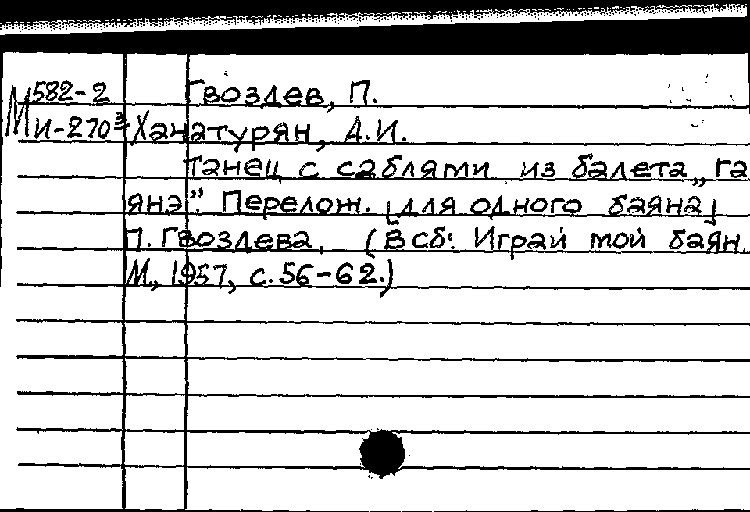 М 582-2 Гвоздев, П.
И-270³ Ханатурян, А.И.
Танец с саблями из балета „Га
янэ". Перелож. [для одного баяна]
П. Гвоздева. (В сб: Играй мой баян.
М., 1957, с. 56-62.)